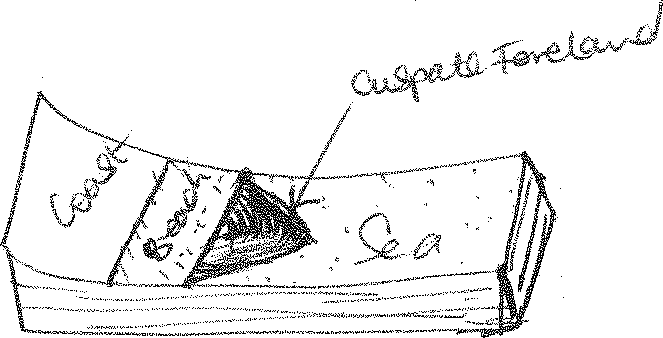 Cuspate Foreland
Coast
Beach
Sea